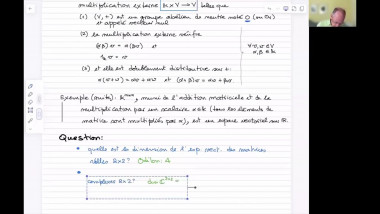 multiplication externe K x V → V telles que
(1) (V, +) est un groupe abélien de neutre noté 0 (ou 0v)
et appelé vecteur nul
(2) la multiplication externe vérifie
(αβ)v = α(βv) et
1 v = v
∀ v, w ∈ V
α, β ∈ K
(3) et elle est doublement distributive sur +:
α(v+w) = αv + αw et (α+β)v = αv + βv
Exemple (suite): muni de l'addition matricielle et de la
multiplication par un scalaire (tous les éléments de
matrice sont multipliés par), est un espace vectoriel sur R.
Question:
• quelle est la dimension de l'esp. vect. des matrices
réelles 2x2? 4
• complexes 2x2? dim C =